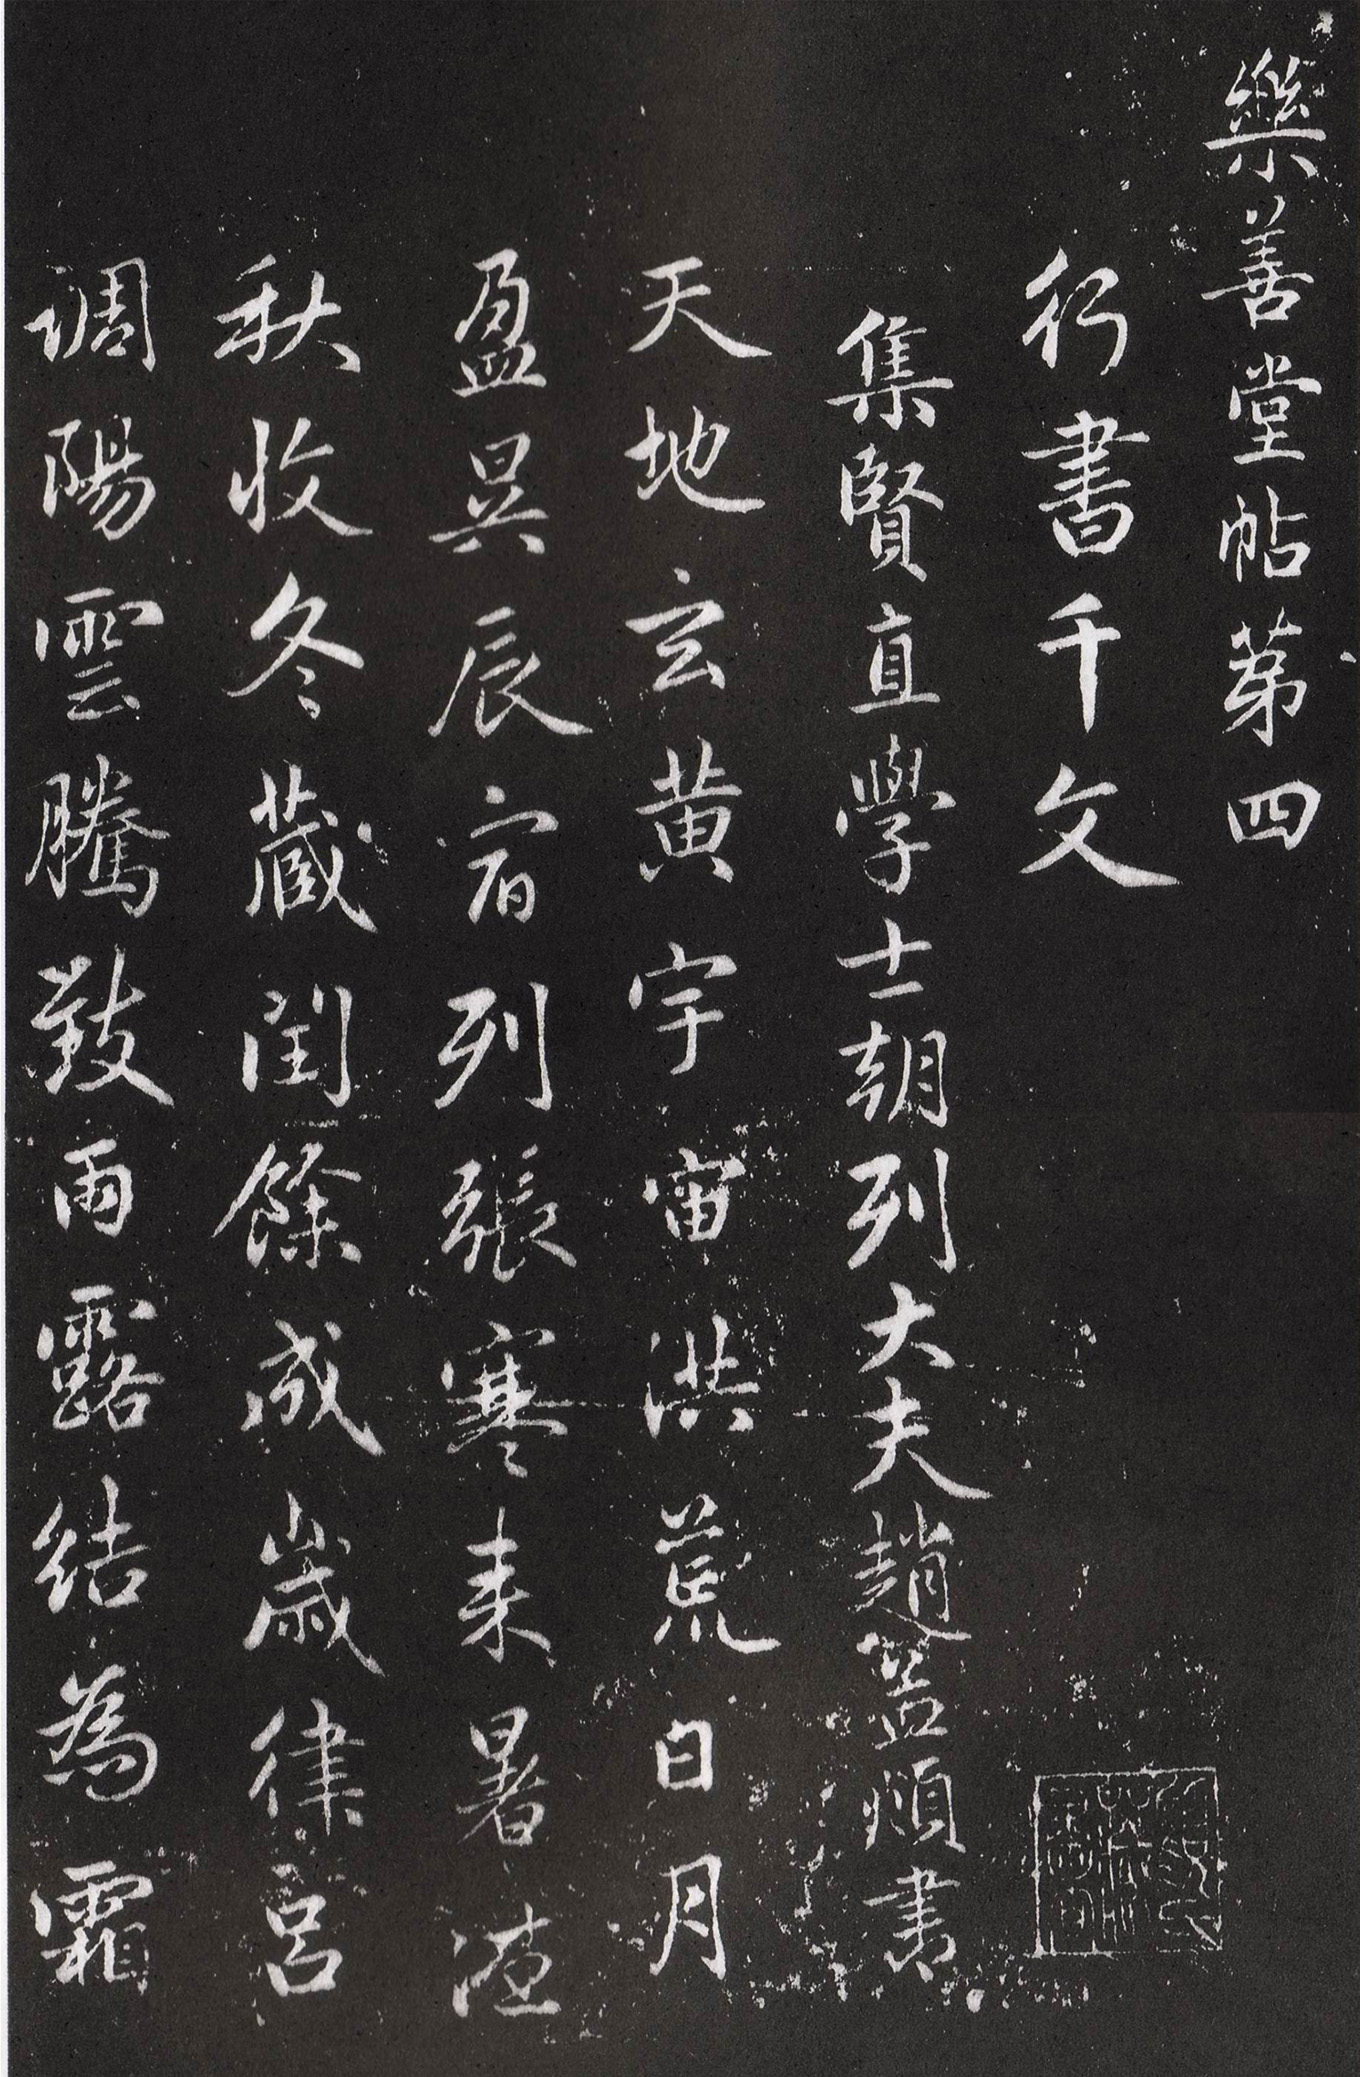 樂善堂帖第四
行書千文
集賢直學士朝列大夫趙孟頫書
天地玄黃宇宙洪荒日月
盈昃辰宿列張寒來暑往
秋收冬藏閏餘成歲律呂
調陽雲騰致雨露結為霜